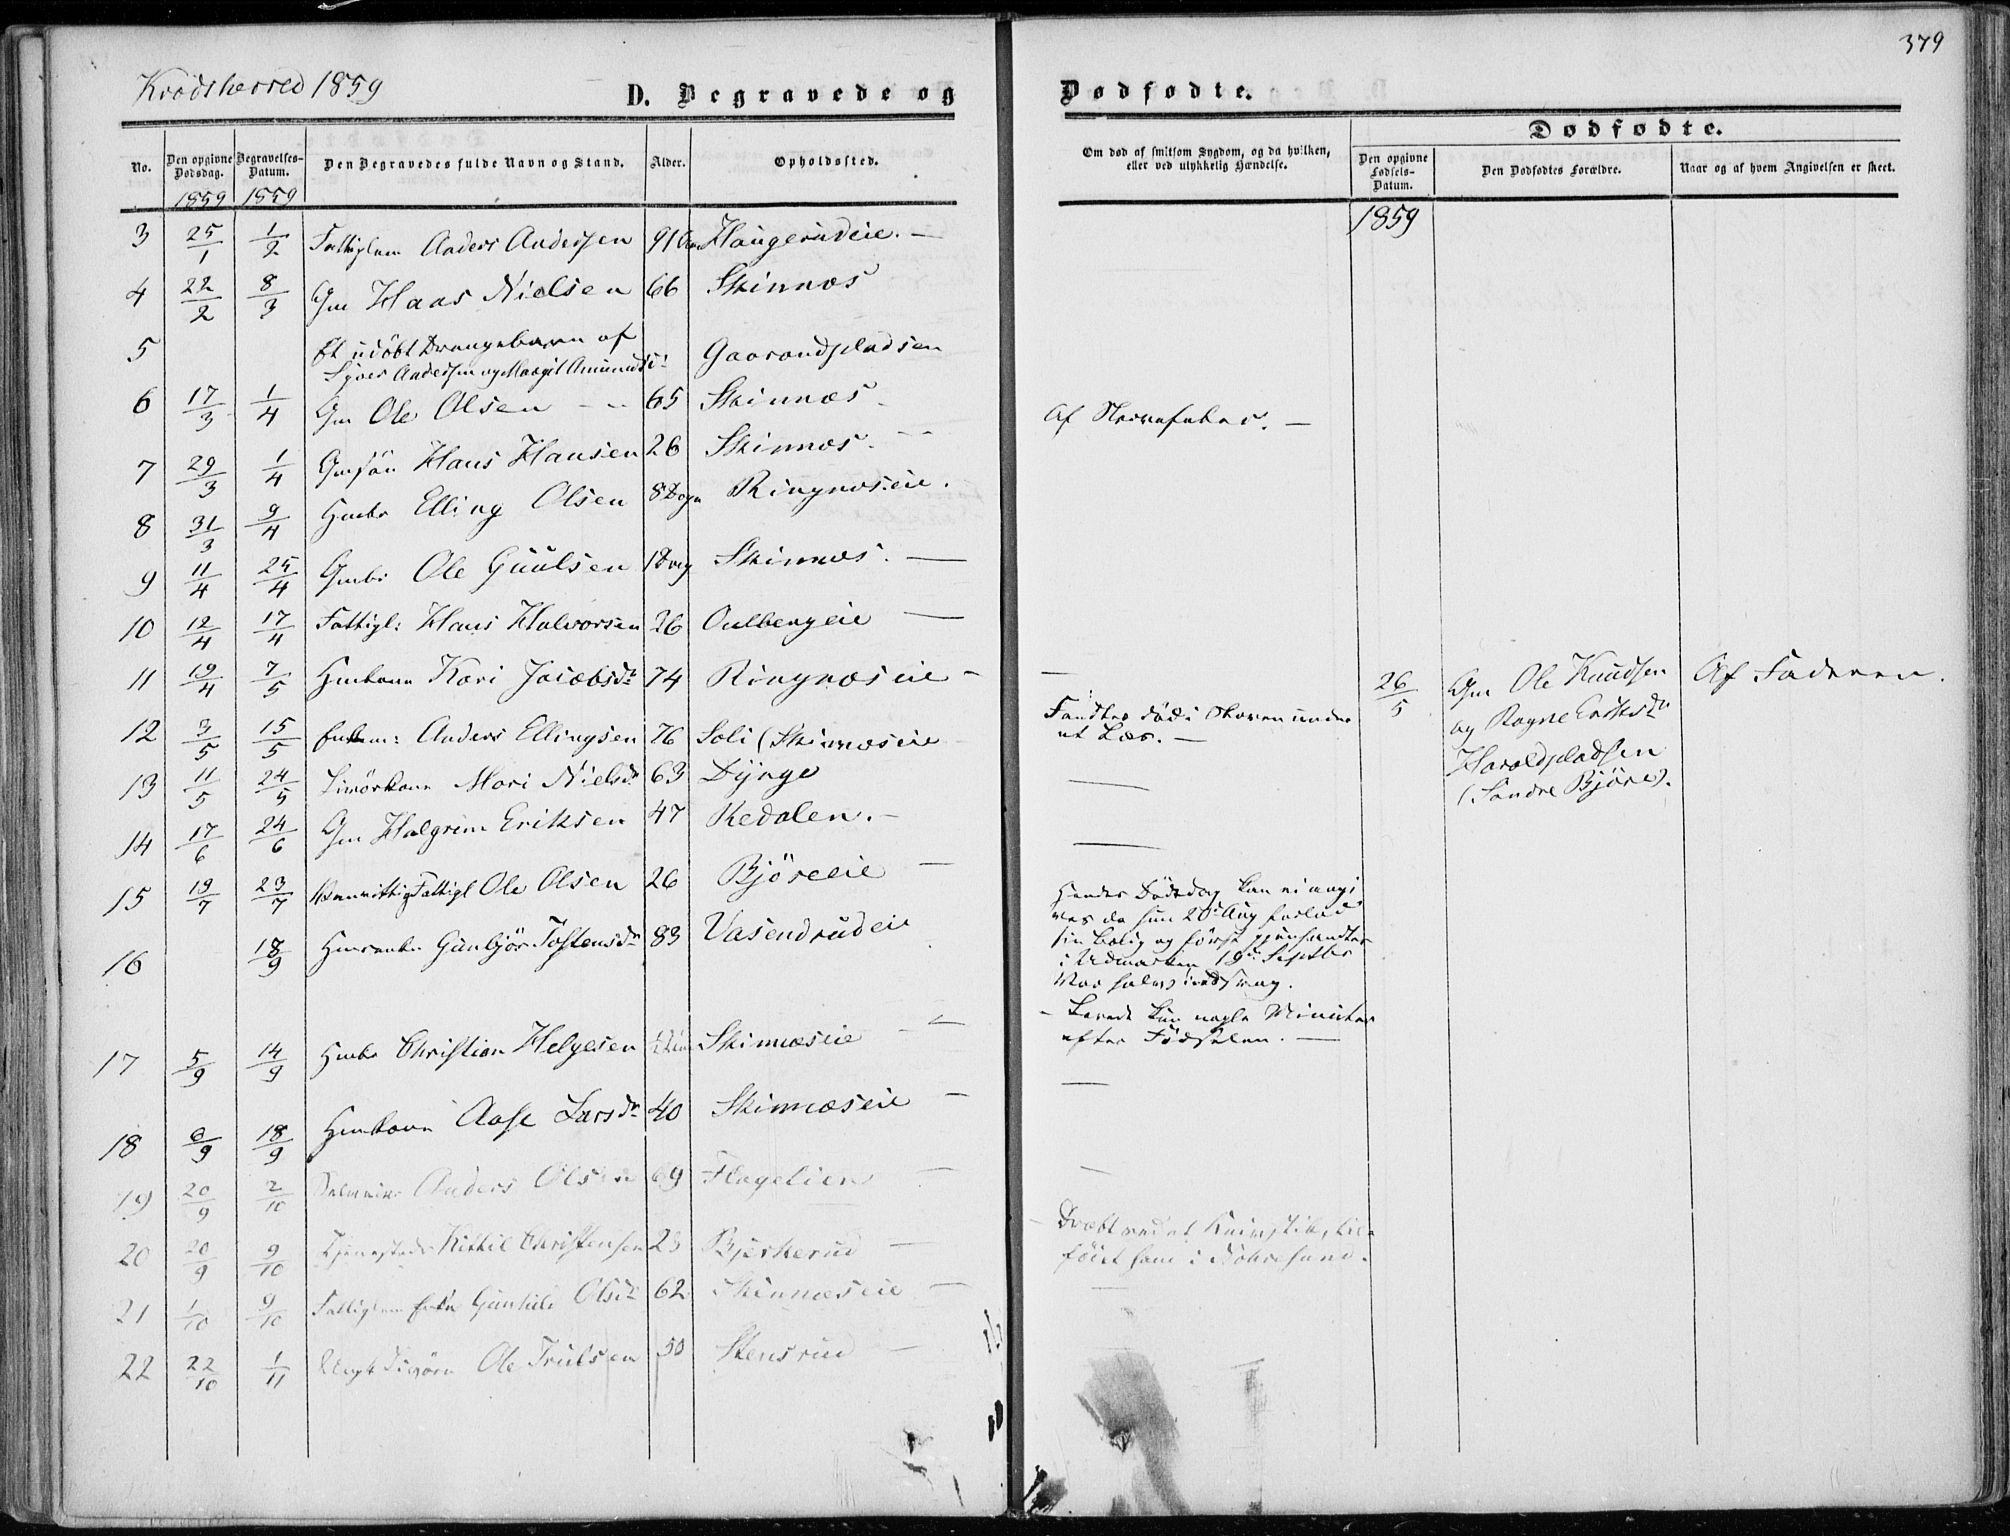 379
Krødsherred 1859
D. Begravede og
Dødfødte.
No.
Den opgivne Dødsdag.
Begravelses-Datum.
Den Begravedes fulde Navn og Stand.
Alder.
Opholdssted.
Om død af smitsom Sygdom, og da hvilken, eller ved ulykkelig Hændelse.
Dødfødte.
Den opgivne Fødsels-Datum.
Den Dødfødtes Forældre.
Naar og af hvem Angivelsen er skeet.
1859 1859
1859
3 25/1 1/2 Fattiglem Anders Andersen 91 Haugerudeie. —
4 22/2 8/3 Gm Haas Nielsen 66 Skinnes
5 Et udöbt Drengebarn af
Syver Andersen og Margit Amunds: Gaarandpladsen
6 17/3 1/4 Gm Ole Olsen 65 Skinnes Af Nervefeber. —
7 29/3 1/4 Gmsön Hans Hansen 26 Skinnes.
8 31/3 9/4 Hmbr Elling Olsen 8 Dage Ringneseie.
9 11/4 25/4 Gmbr Ole Guulsen 1 Dag Skinnes. —
10 12/4 17/4 Fattigl: Hans Halvorsen 26 Oulbergeie —
11 19/4 7/5 Hmkone Kari Jacobsdr 74 Ringneseie —
26/5 Gm Ole Knudsen
og Ragne Eriksdr
Haraldpladsen
(Søndre Björe).
Af Faderen.
12 3/5 15/5 Enkem: Anders Ellingsen 76 Soli (Skinneseie Fandtes död i Skoven under
et Læs. —
13 11/5 24/5 Livörkone Mari Nielsdr 63 Dynge
14 17/6 24/6 Gm Halgrim Eriksen 47 Redalen. —
15 19/7 23/7 Vanvittig Fattigl Ole Olsen 26 Björeeie —
16 18/9 Gunbjör Tostensdr 83 Vasendrudeie
Hendes Dödsdag kan ei angi
ves da hun 20de Aug forlod
sin Bolig og først gjenfandtes
i Udmarken 19de Septbr
Var halvs indsvag.
17 5/9 14/9 Hmbr Christian Helgesen Skinneseie — Levede kun nogle Minuter
efter Födselen. —
18 6/9 18/9 Hmkone Aase Larsdr 40 Skinneseie —
19 20/9 2/10 Anders Olsen 69 Flagelien —
20 20/9 9/10 Kittil Christensen 23 Bjerkerud — Dræbt ved et Knivstik, til-
föiet ham i Noresund.
21 1/10 9/10 Fattiglem Enke Gunhild Olsdr 62 Skinneseie —
22 22/10 1/11 Ole Trulsen 50 Stensrud —